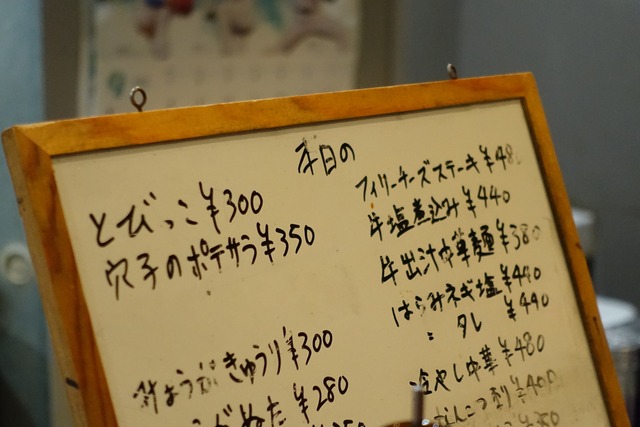 本日の
とびっこ ¥300
穴子のポテサラ ¥350
きゅうり ¥300
¥280
フィリーチーズステーキ ¥48
牛塩煮込み ¥440
牛出汁中華麺 ¥380
はらみネギ塩 ¥440
〃 タレ ¥440
冷やし中華 ¥480
¥400
¥350